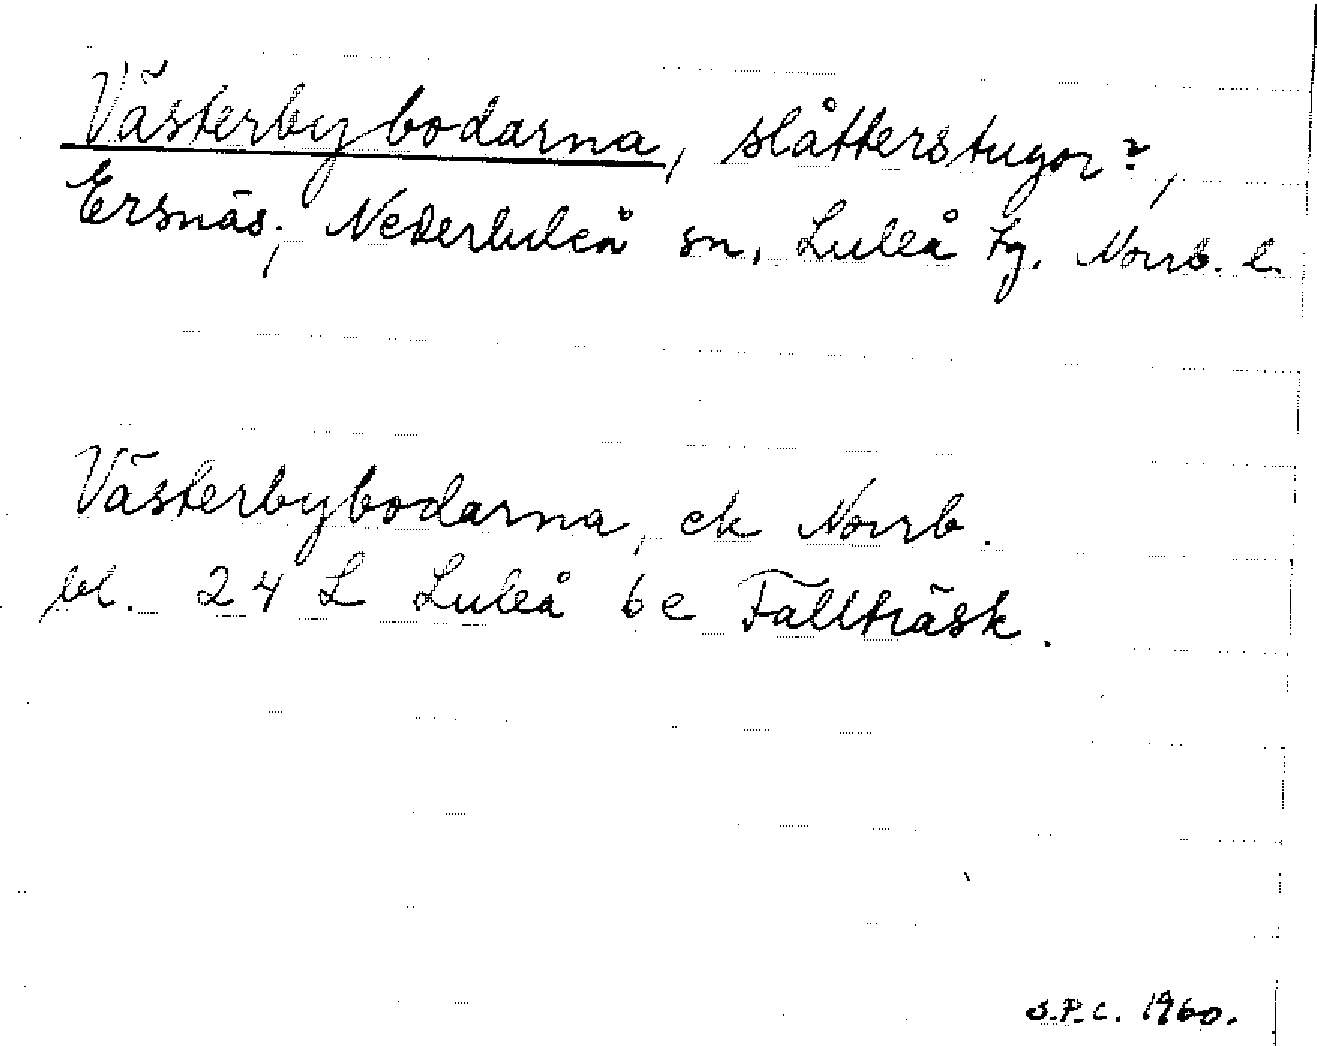 Västerbybodarna, slåtterstugor?,
Ersnäs, Nederluleå sn, Luleå tg. Norrb. l.
Västerbybodarna, ek Norrb.
bl. 24 L Luleå 6e Fällträsk.
S.P.C. 1960.